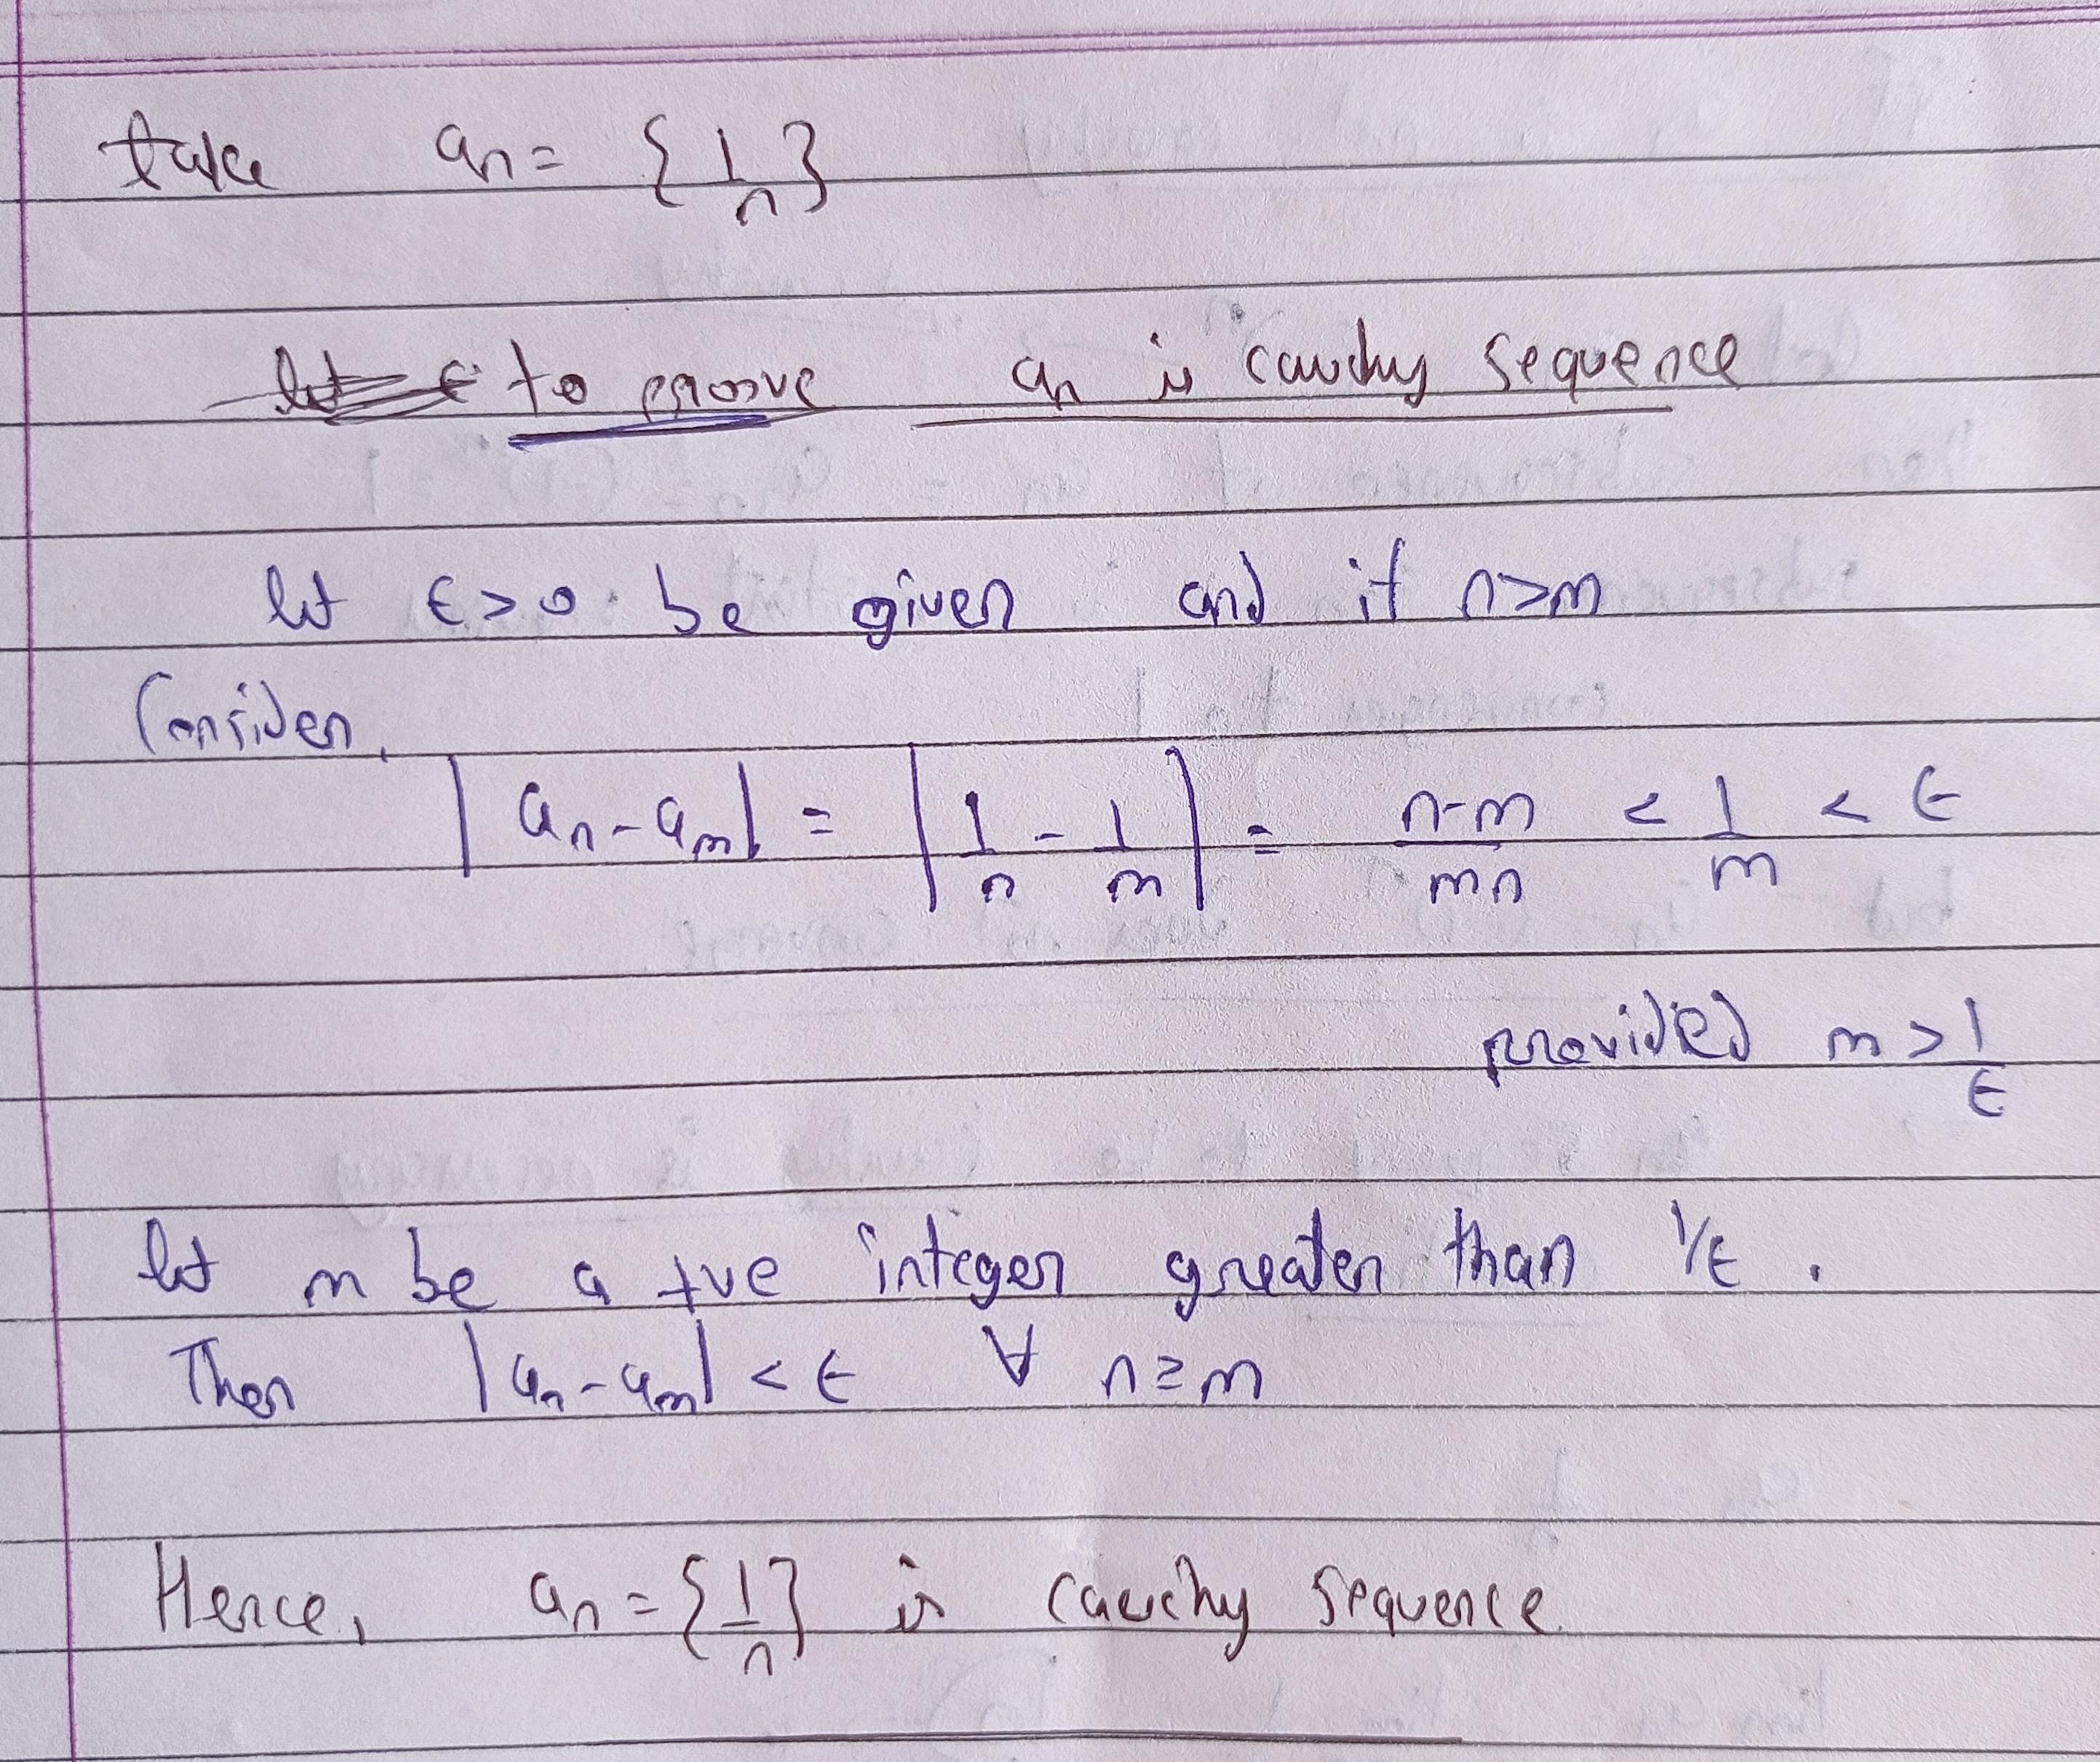 take an = {1/n}
to prove an is cauchy sequence
let ϵ>0 be given and if n>m
Consider,
|an-am| = |1/n - 1/m| = n-m/mn < 1/m < ϵ
provided m>1/ϵ
let m be a +ve integer greater than 1/ϵ.
Then |an-am| < ϵ ∀ n≥m
Hence, an={1/n} is cauchy sequence